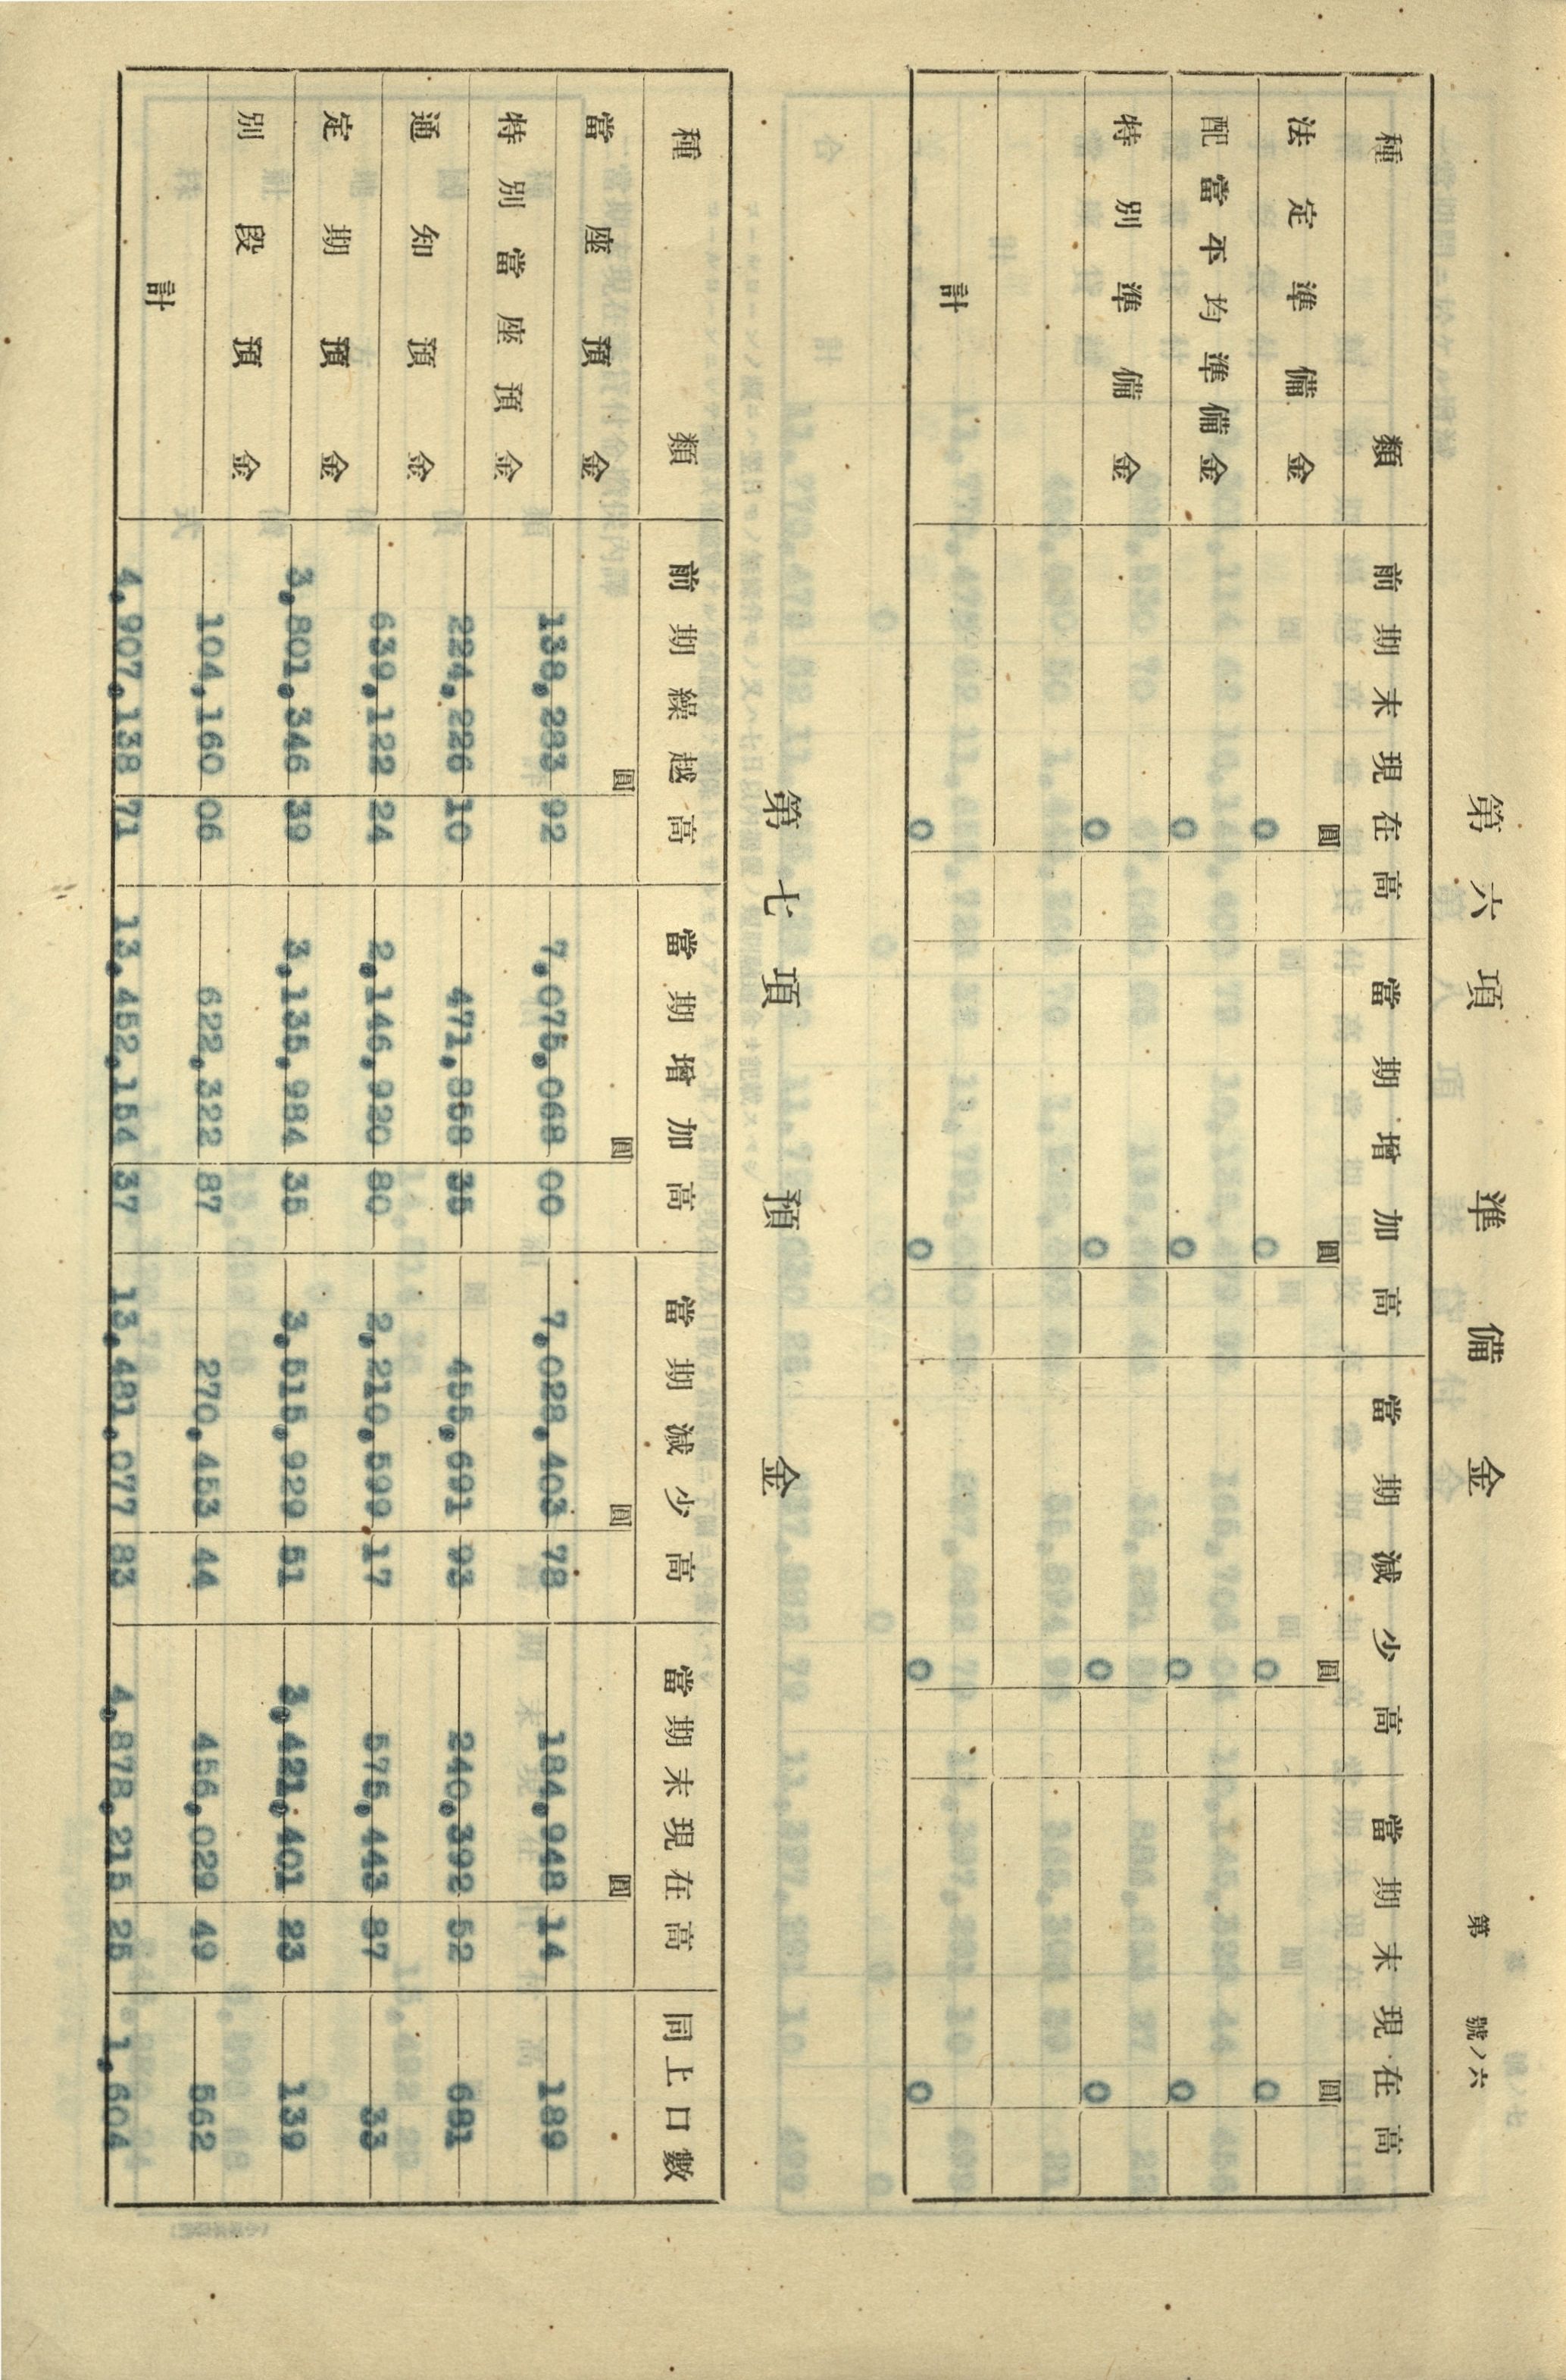 第 號ノ六
第六項 準備金
種類 前期末現在高 當期增加高 當期減少高 當期末現在高
圓 圓 圓 圓
法定準備金 0 0 0 0
配當平均準備金 0 0 0 0
特別準備金 0 0 0 0
計 0 0 0 0
第七項 預金
種類 前期繰越高 當期增加高 當期減少高 當期末現在高 同上口數
圓 圓 圓 圓
當座預金 138,283 92 7,075,068 00 7,028,403 78 184,948 14 189
特別當座預金 224,226 10 471,858 35 455,691 93 240,392 52 681
通知預金 639,122 24 2,146,920 80 2,210,599 17 575,443 87 33
定期預金 3,801,346 39 3,135,984 35 3,515,929 51 3,421,401 23 139
別段預金 104,160 06 622,322 87 270,453 44 456,029 49 562
計 4,907,138 71 13,452,154 37 13,481,077 83 4,878,215 25 1,604